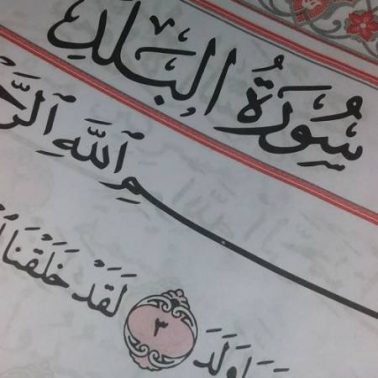 سُورَةُ البَلَدِ
ٱللَّهِ
وَلَدَ ٣ لَقَدْ خَلَقْنَا